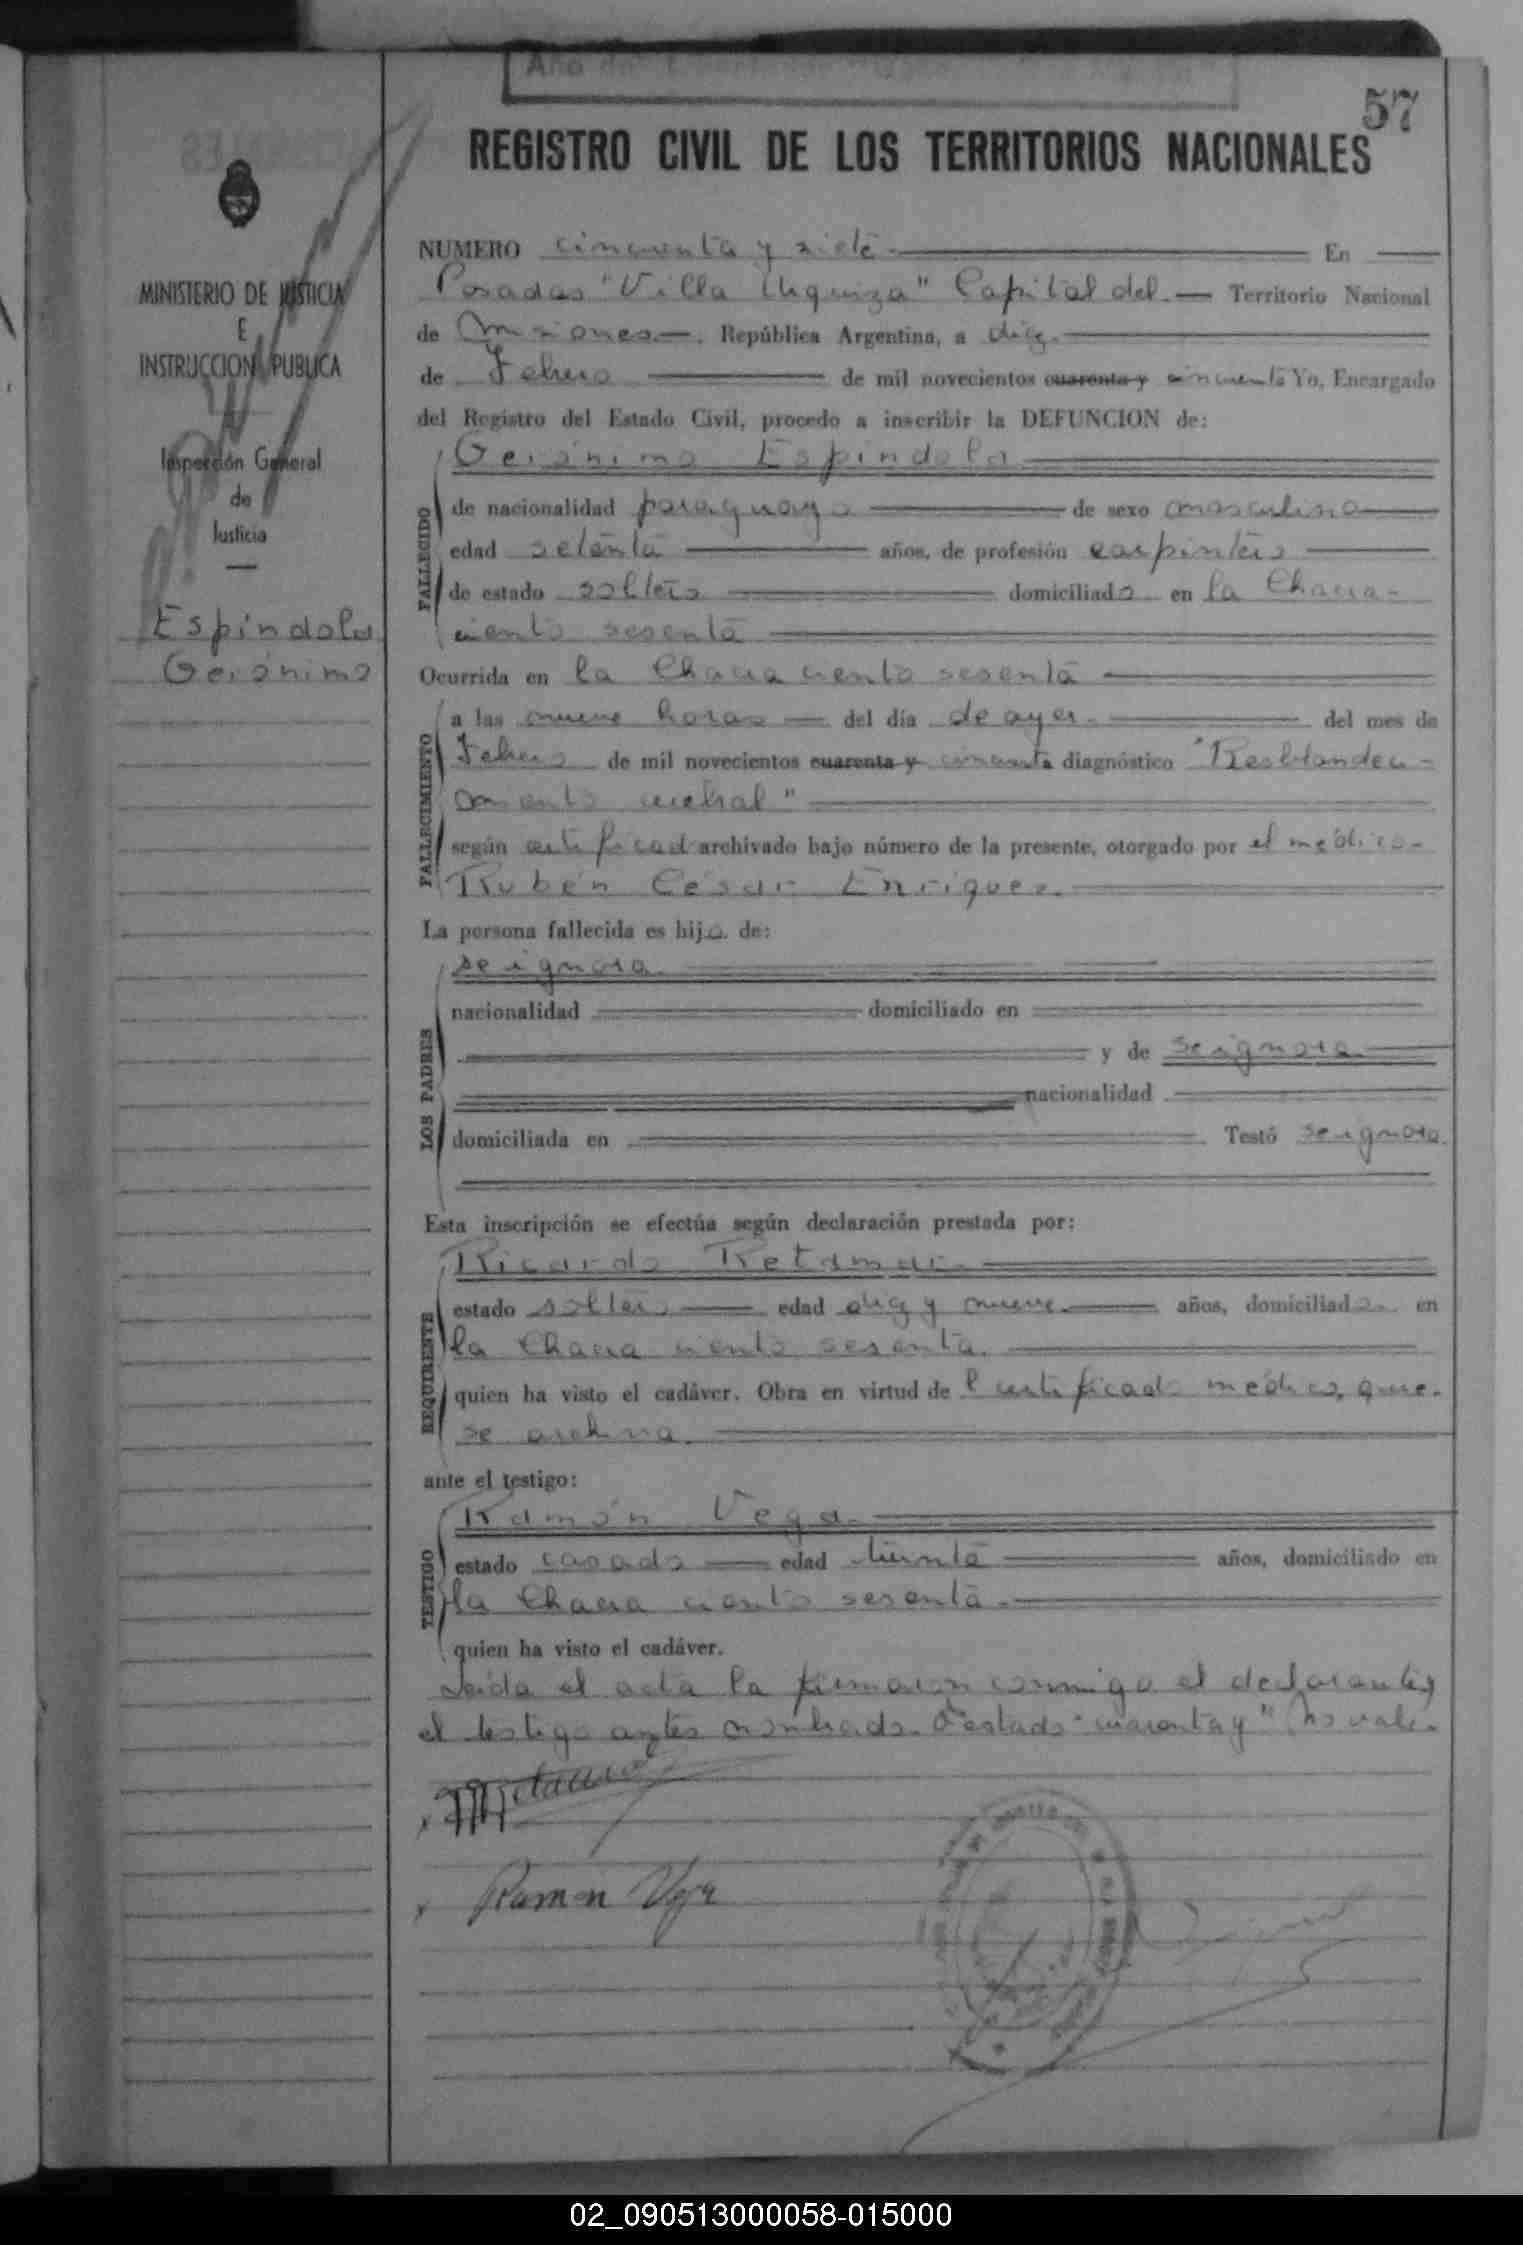 57
REGISTRO CIVIL DE LOS TERRITORIOS NACIONALES
MINISTERIO DE JUSTICIA
E
INSTRUCCION PUBLICA
Inspección General
de
Justicia
Espíndola
Gerónimo
NUMERO cincuenta y siete En
Posadas "Villa Urquiza" Capital del Territorio Nacional
de Misiones. República Argentina, a diez
de Febrero de mil novecientos cuarenta y cincuenta Yo, Encargado
del Registro del Estado Civil, procedo a inscribir la DEFUNCION de:
Gerónimo Espíndola
FALLECIDO
de nacionalidad paraguayo de sexo masculino
edad setenta años, de profesión carpintero
de estado soltero domiciliado en la Chacra
ciento sesenta
Ocurrida en la Chacra ciento sesenta
FALLECIMIENTO
a las nueve horas del día de ayer. del mes de
Febrero de mil novecientos cuarenta y cincuenta diagnóstico "Reblandeci-
miento cerebral"
según certificad archivado bajo número de la presente, otorgado por el médico
Rubén César Enriquez.
La persona fallecida es hijo de:
LOS PADRES
se ignora.
nacionalidad domiciliado en
y de se ignora
nacionalidad
domiciliada en Testó se ignora.
Esta inscripción se efectúa según declaración prestada por:
REQUIRENTE
Ricardo Retamar.
estado soltero edad diez y nueve años, domiciliado en
la Chacra ciento sesenta.
quien ha visto el cadáver. Obra en virtud de l certificado médico, que
se archiva.
ante el testigo:
TESTIGO
Ramón Vega.
estado casado edad treinta años, domiciliado en
la Chacra ciento sesenta.
quien ha visto el cadáver.
Leída el acta la firmaron conmigo el declarante y
el testigo antes nombrado. Testado "cuarenta y" No vale.
Ramón Vega
02_090513000058-015000